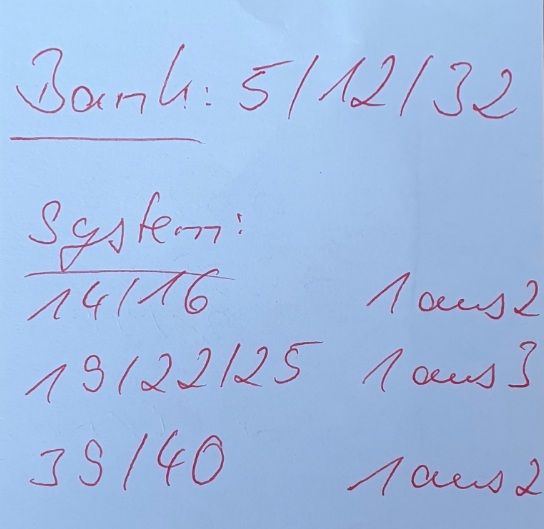 Bank: 5/12/32
System:
14/16 1 aus 2
19/22/25 1 aus 3
39/40 1 aus 2